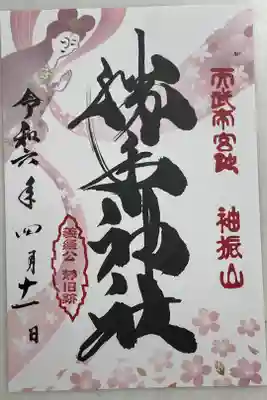 袖振山
勝手神社
義経公
静旧跡
令和六年四月十一日